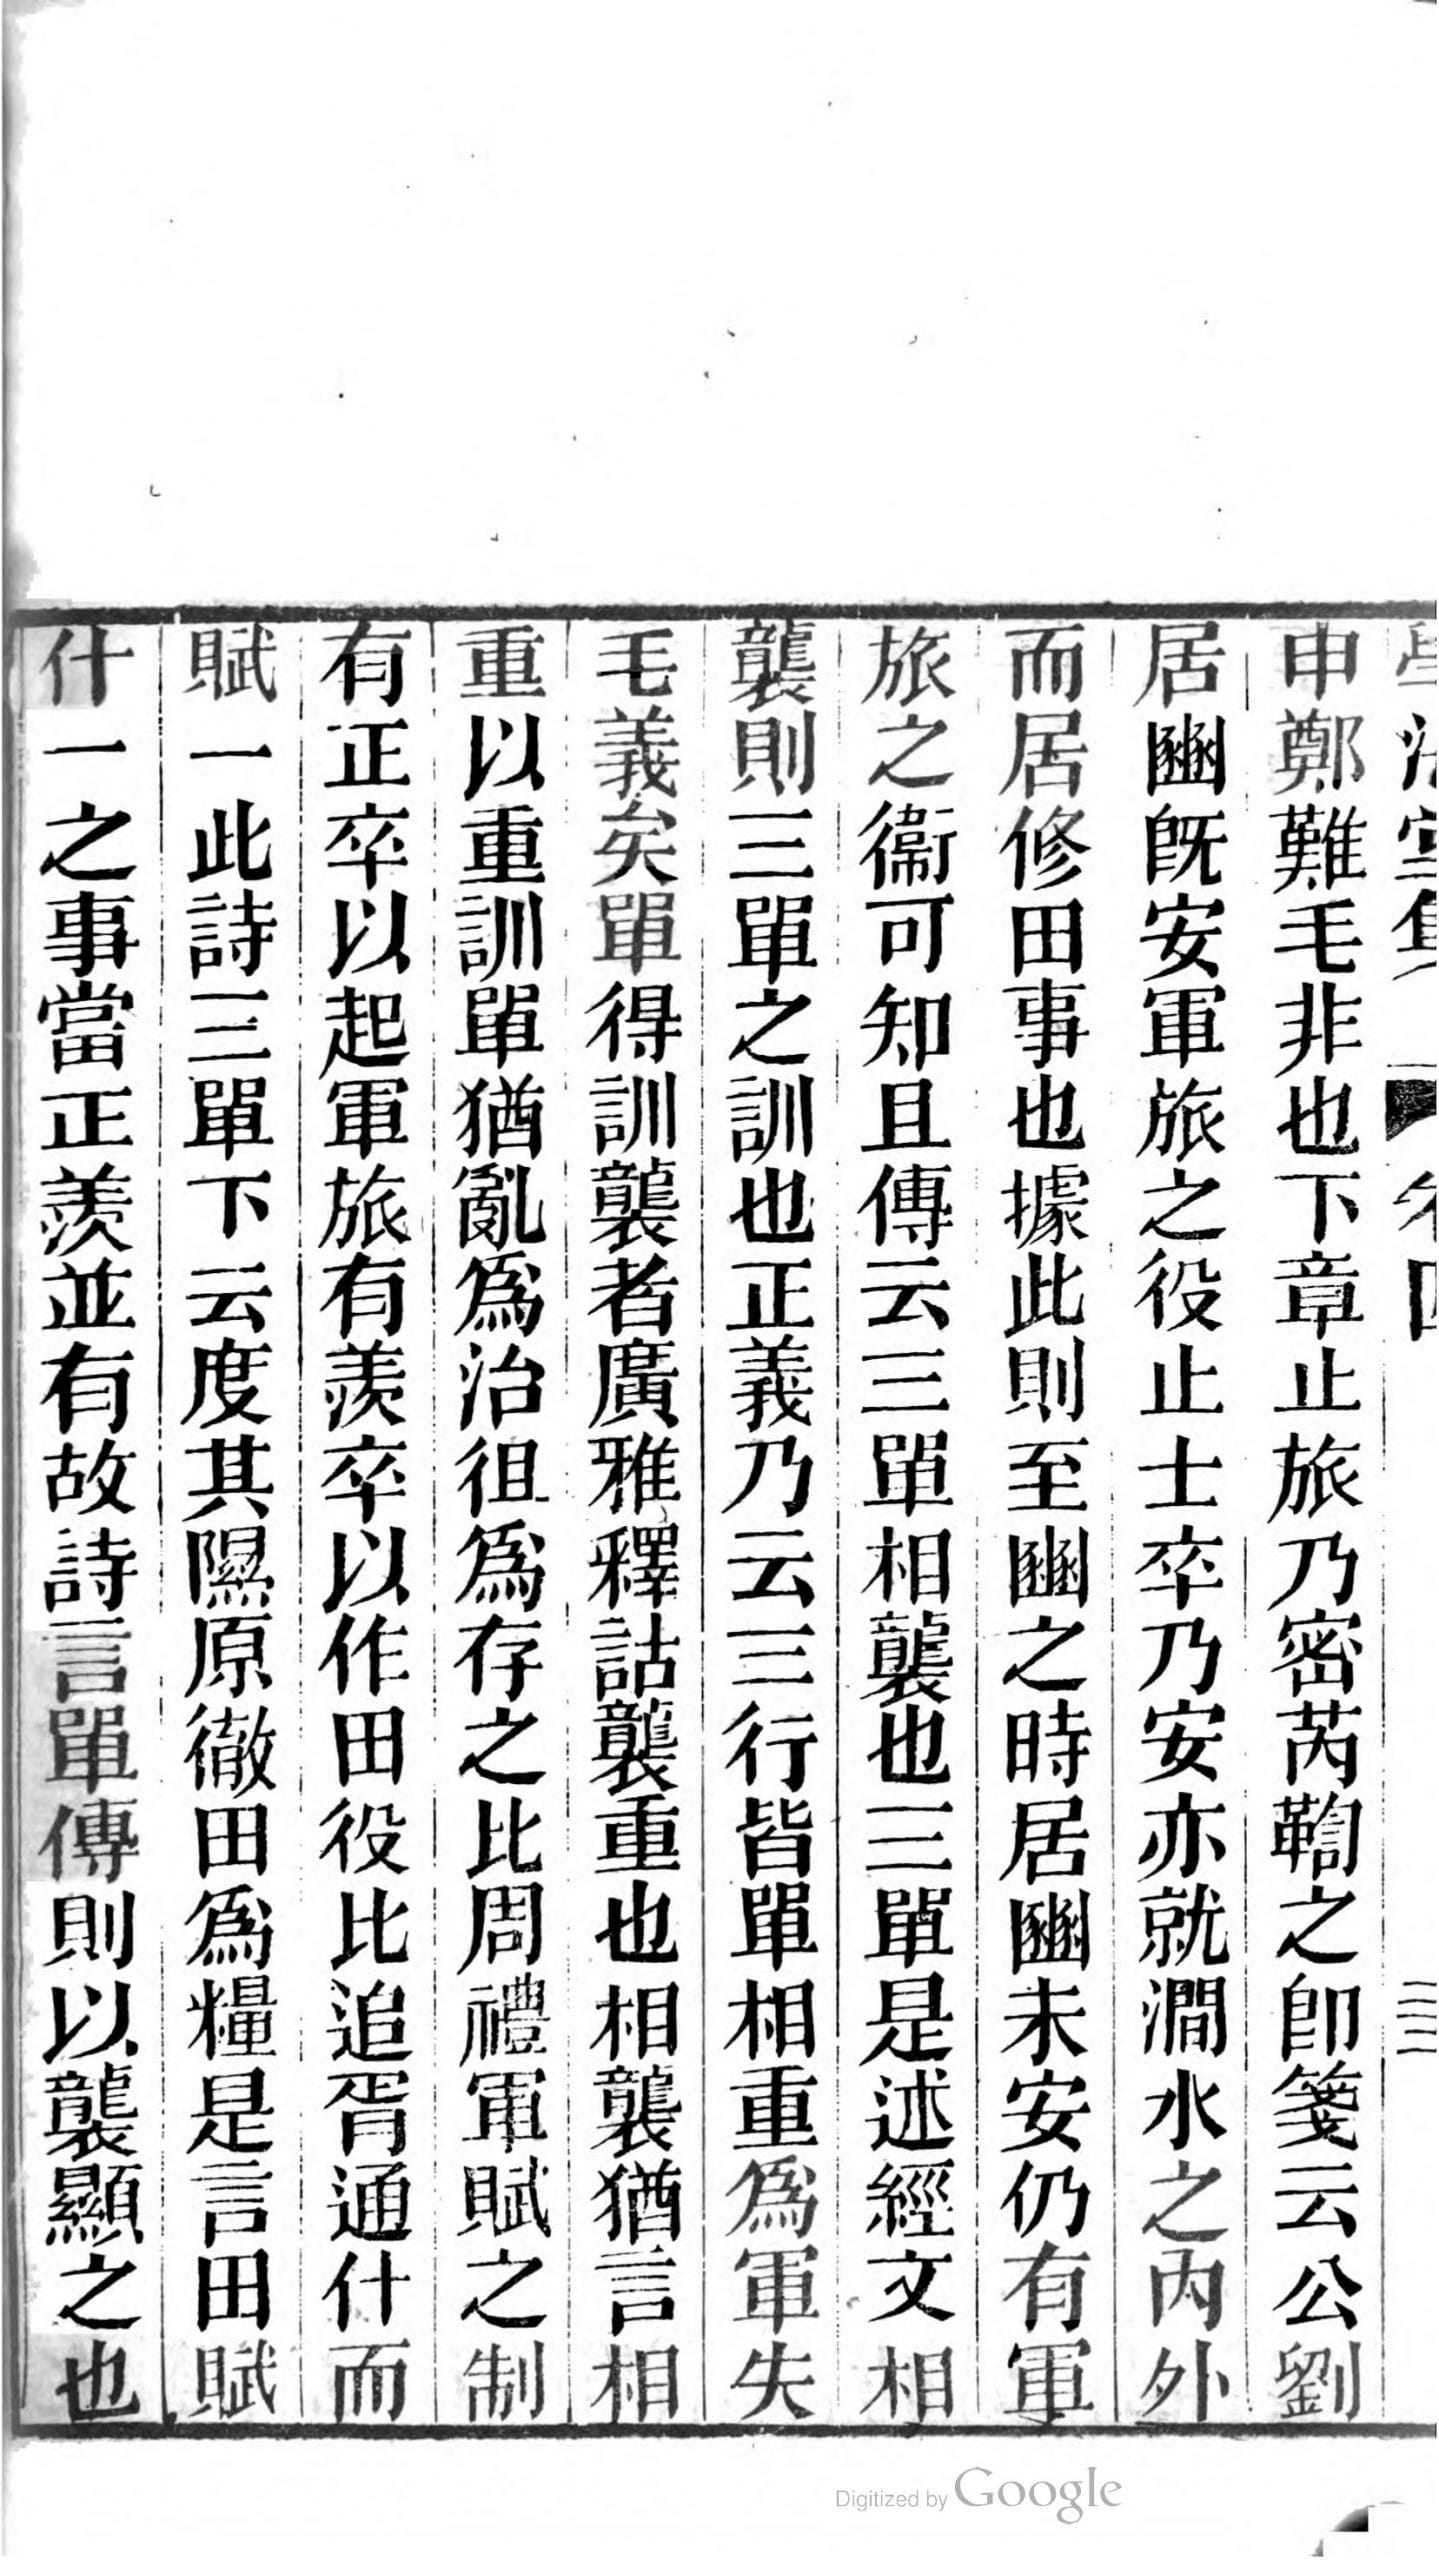 申鄭難毛非也下章止旅乃密芮鞫之卽箋云公劉
居豳旣安軍旅之役止士卒乃安亦就澗水之內外
而居修田事也據此則至豳之時居豳未安仍有軍
旅之衞可知且傳云三單相襲也三單是述經文相
襲則三單之訓也正義乃云三行皆單相重爲軍失
毛義矣單得訓襲者廣雅釋詁襲重也相襲猶言相
重以重訓單猶亂爲治徂爲存之比周禮軍賦之制
有正卒以起軍旅有羨卒以作田役比追胥通什而
賦一此詩三單下云度其隰原徹田爲糧是言田賦
什一之事當正羨並有故詩言單傳則以襲顯之也
Digitized by Google